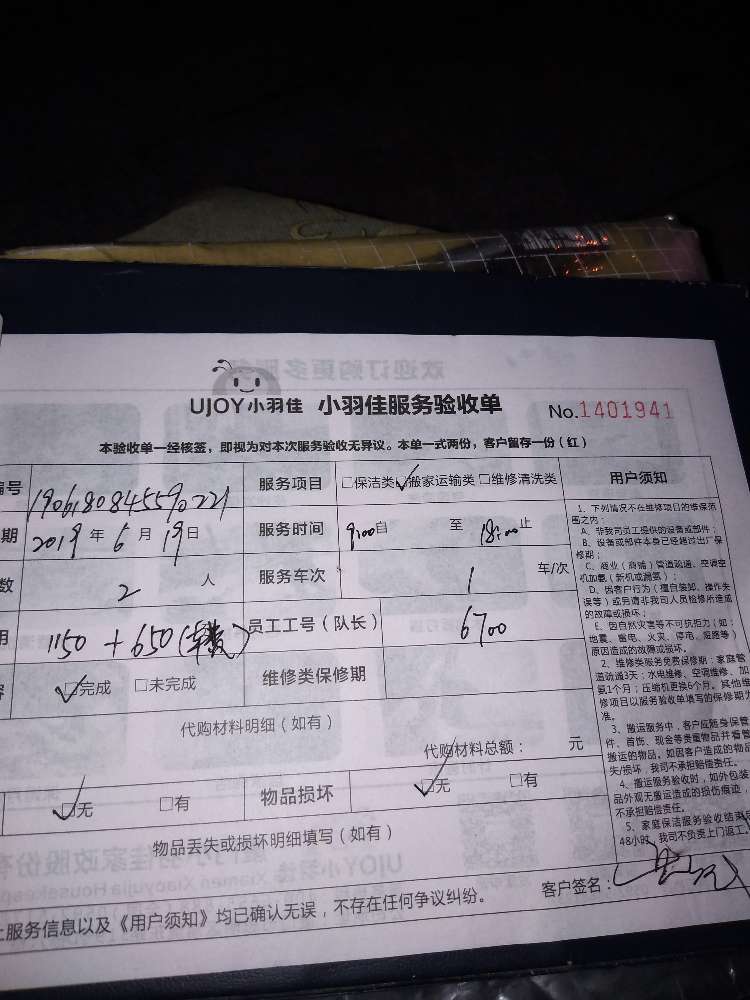 UJOY小羽佳 小羽佳服务验收单 No.1401941
本验收单一经核签，即视为对本次服务验收无异议。本单一式两份，客户留存一份（红）
编号 1906180845590221 服务项目 □保洁类 ☑搬家运输类 □维修清洗类 用户须知
期 2019年6月19日 服务时间 9:00自 至 18:00止
数 2 人 服务车次 1 车/次
用 1150+650( 员工工号（队长） 6700
☑完成 □未完成 维修类保修期
代购材料明细（如有）
代购材料总额： 元
☑无 □有 物品损坏 ☑无 □有
物品丢失或损坏明细填写（如有）
上服务信息以及《用户须知》均已确认无误，不存在任何争议纠纷。 客户签名：
1、下列情况不在维修项目的维保范
围之内：
A、非我司员工提供的设备或部件；
B、设备或部件本身已经超过出厂保
修期；
C、商业（商铺）管道疏通、空调空
机加氨（新机或漏氨）；
D、因客户行为（擅自装卸、操作失
误等）或另请非我司人员检修所造成
的故障或损坏；
E、因自然灾害等不可抗拒力（如：
地震、雷电、火灾、停电、短路等）
原因造成的故障或损坏。
2、维修类服务免费保修期：家庭管
道疏通3天；水电维修、空调维修、加
氨1个月；压缩机更换6个月。其他维
修项目以服务验收单填写的保修期为
准。
3、搬运服务中，客户应随身保管
件、首饰、现金等贵重物品并看管
搬运的物品。如因客户造成的物品
失/损坏，我司不承担赔偿责任。
4、搬运服务验收时，如外包装
品外观无搬运造成的损伤痕迹，
不承担赔偿责任。
5、家庭保洁服务验收结束后
48小时，我司不负责上门返工。